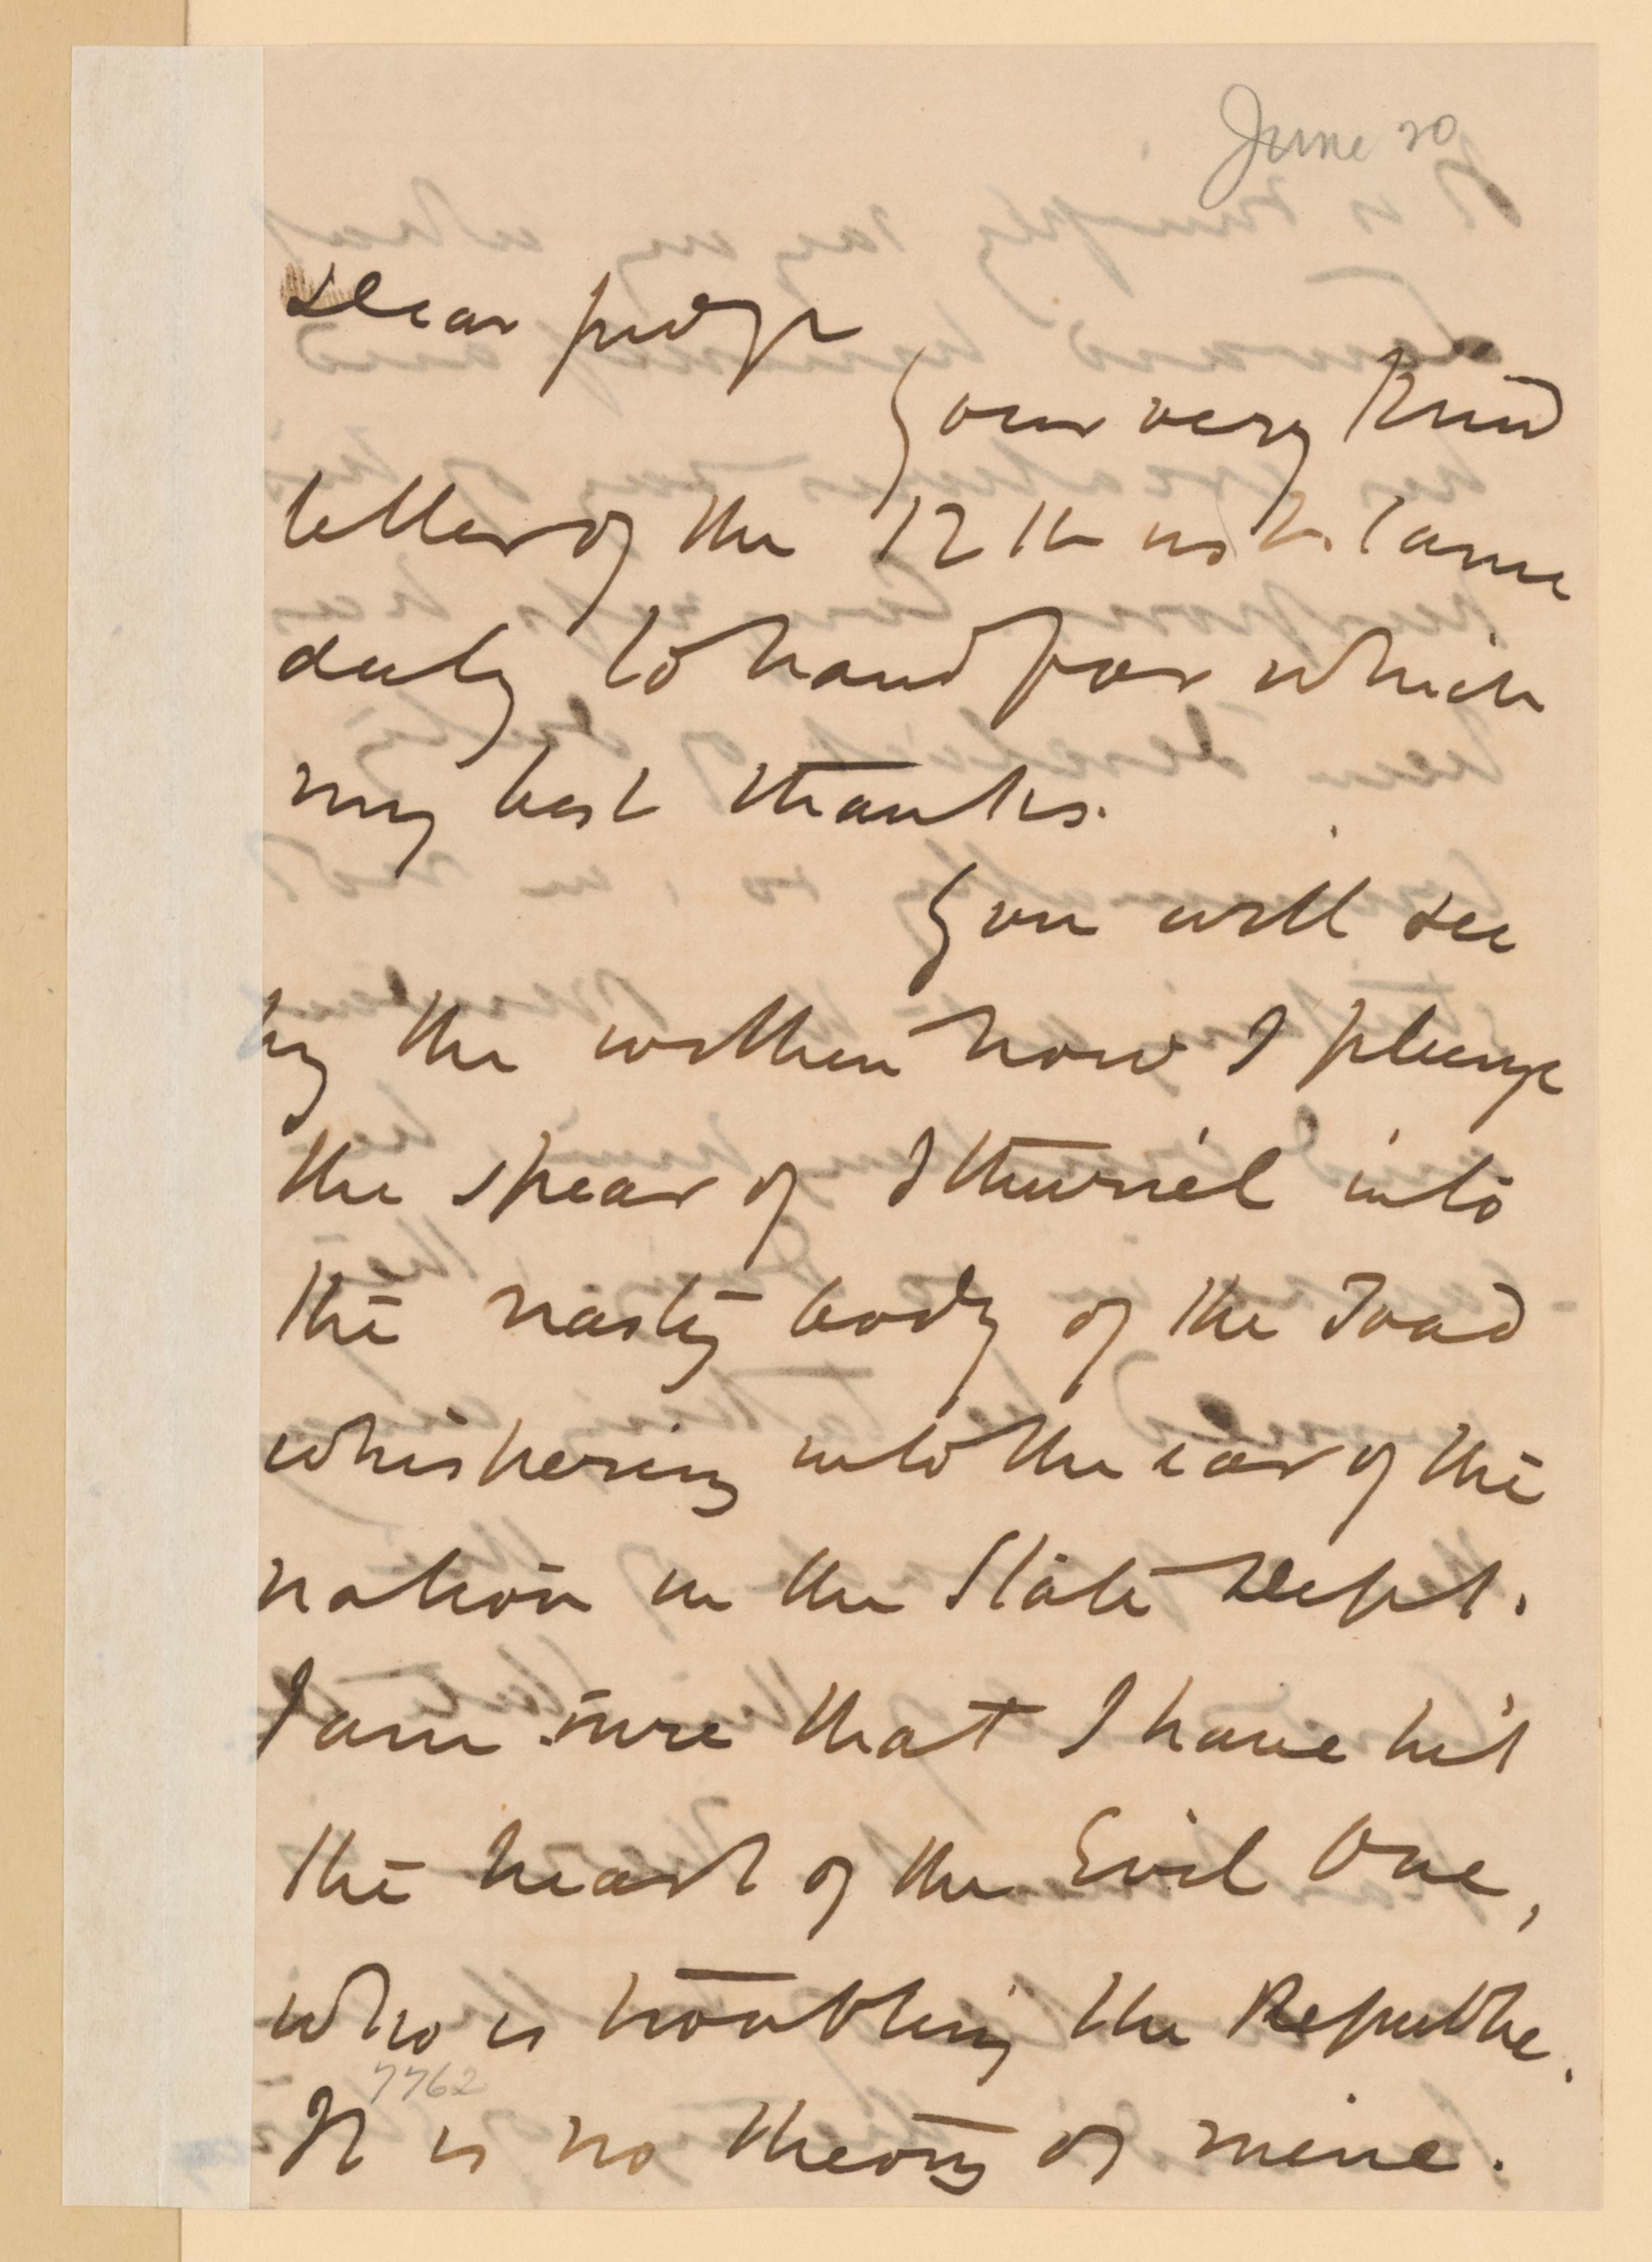 June 20
Dear judge
Your very kind
letter of the 12th inst. came
duly to hand for which
my best thanks.
You will see
by the within how I plunge
the spear of Ithuriel into
the nasty body of the Toad
whispering into the ear of the
nation in the State Dept.
I am sure that I have hit
the heart of the Evil One,
who is troubling the Republic.
7762
It is no theory of mine.